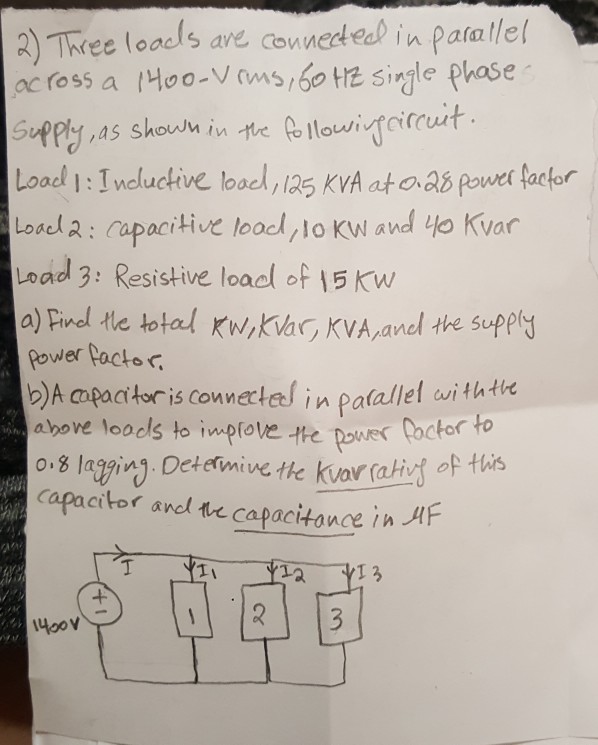 2) Three loads are connected in parallel
across a 1400-V rms, 60 HZ single phase
Supply, as shown in the following circuit.
Load 1: Inductive load, 125 KVA at 0.28 power factor
Load 2: capacitive load, 10 KW and 40 Kvar
Load 3: Resistive load of 15 KW
a) Find the total KW, KVar, KVA, and the supply
power factor.
b) A capacitor is connected in parallel with the
above loads to improve the power factor to
0.8 lagging. Determine the Kvar rating of this
capacitor and the capacitance in µF
I I1 I2 I3
+
-
1 2 3
1400 V